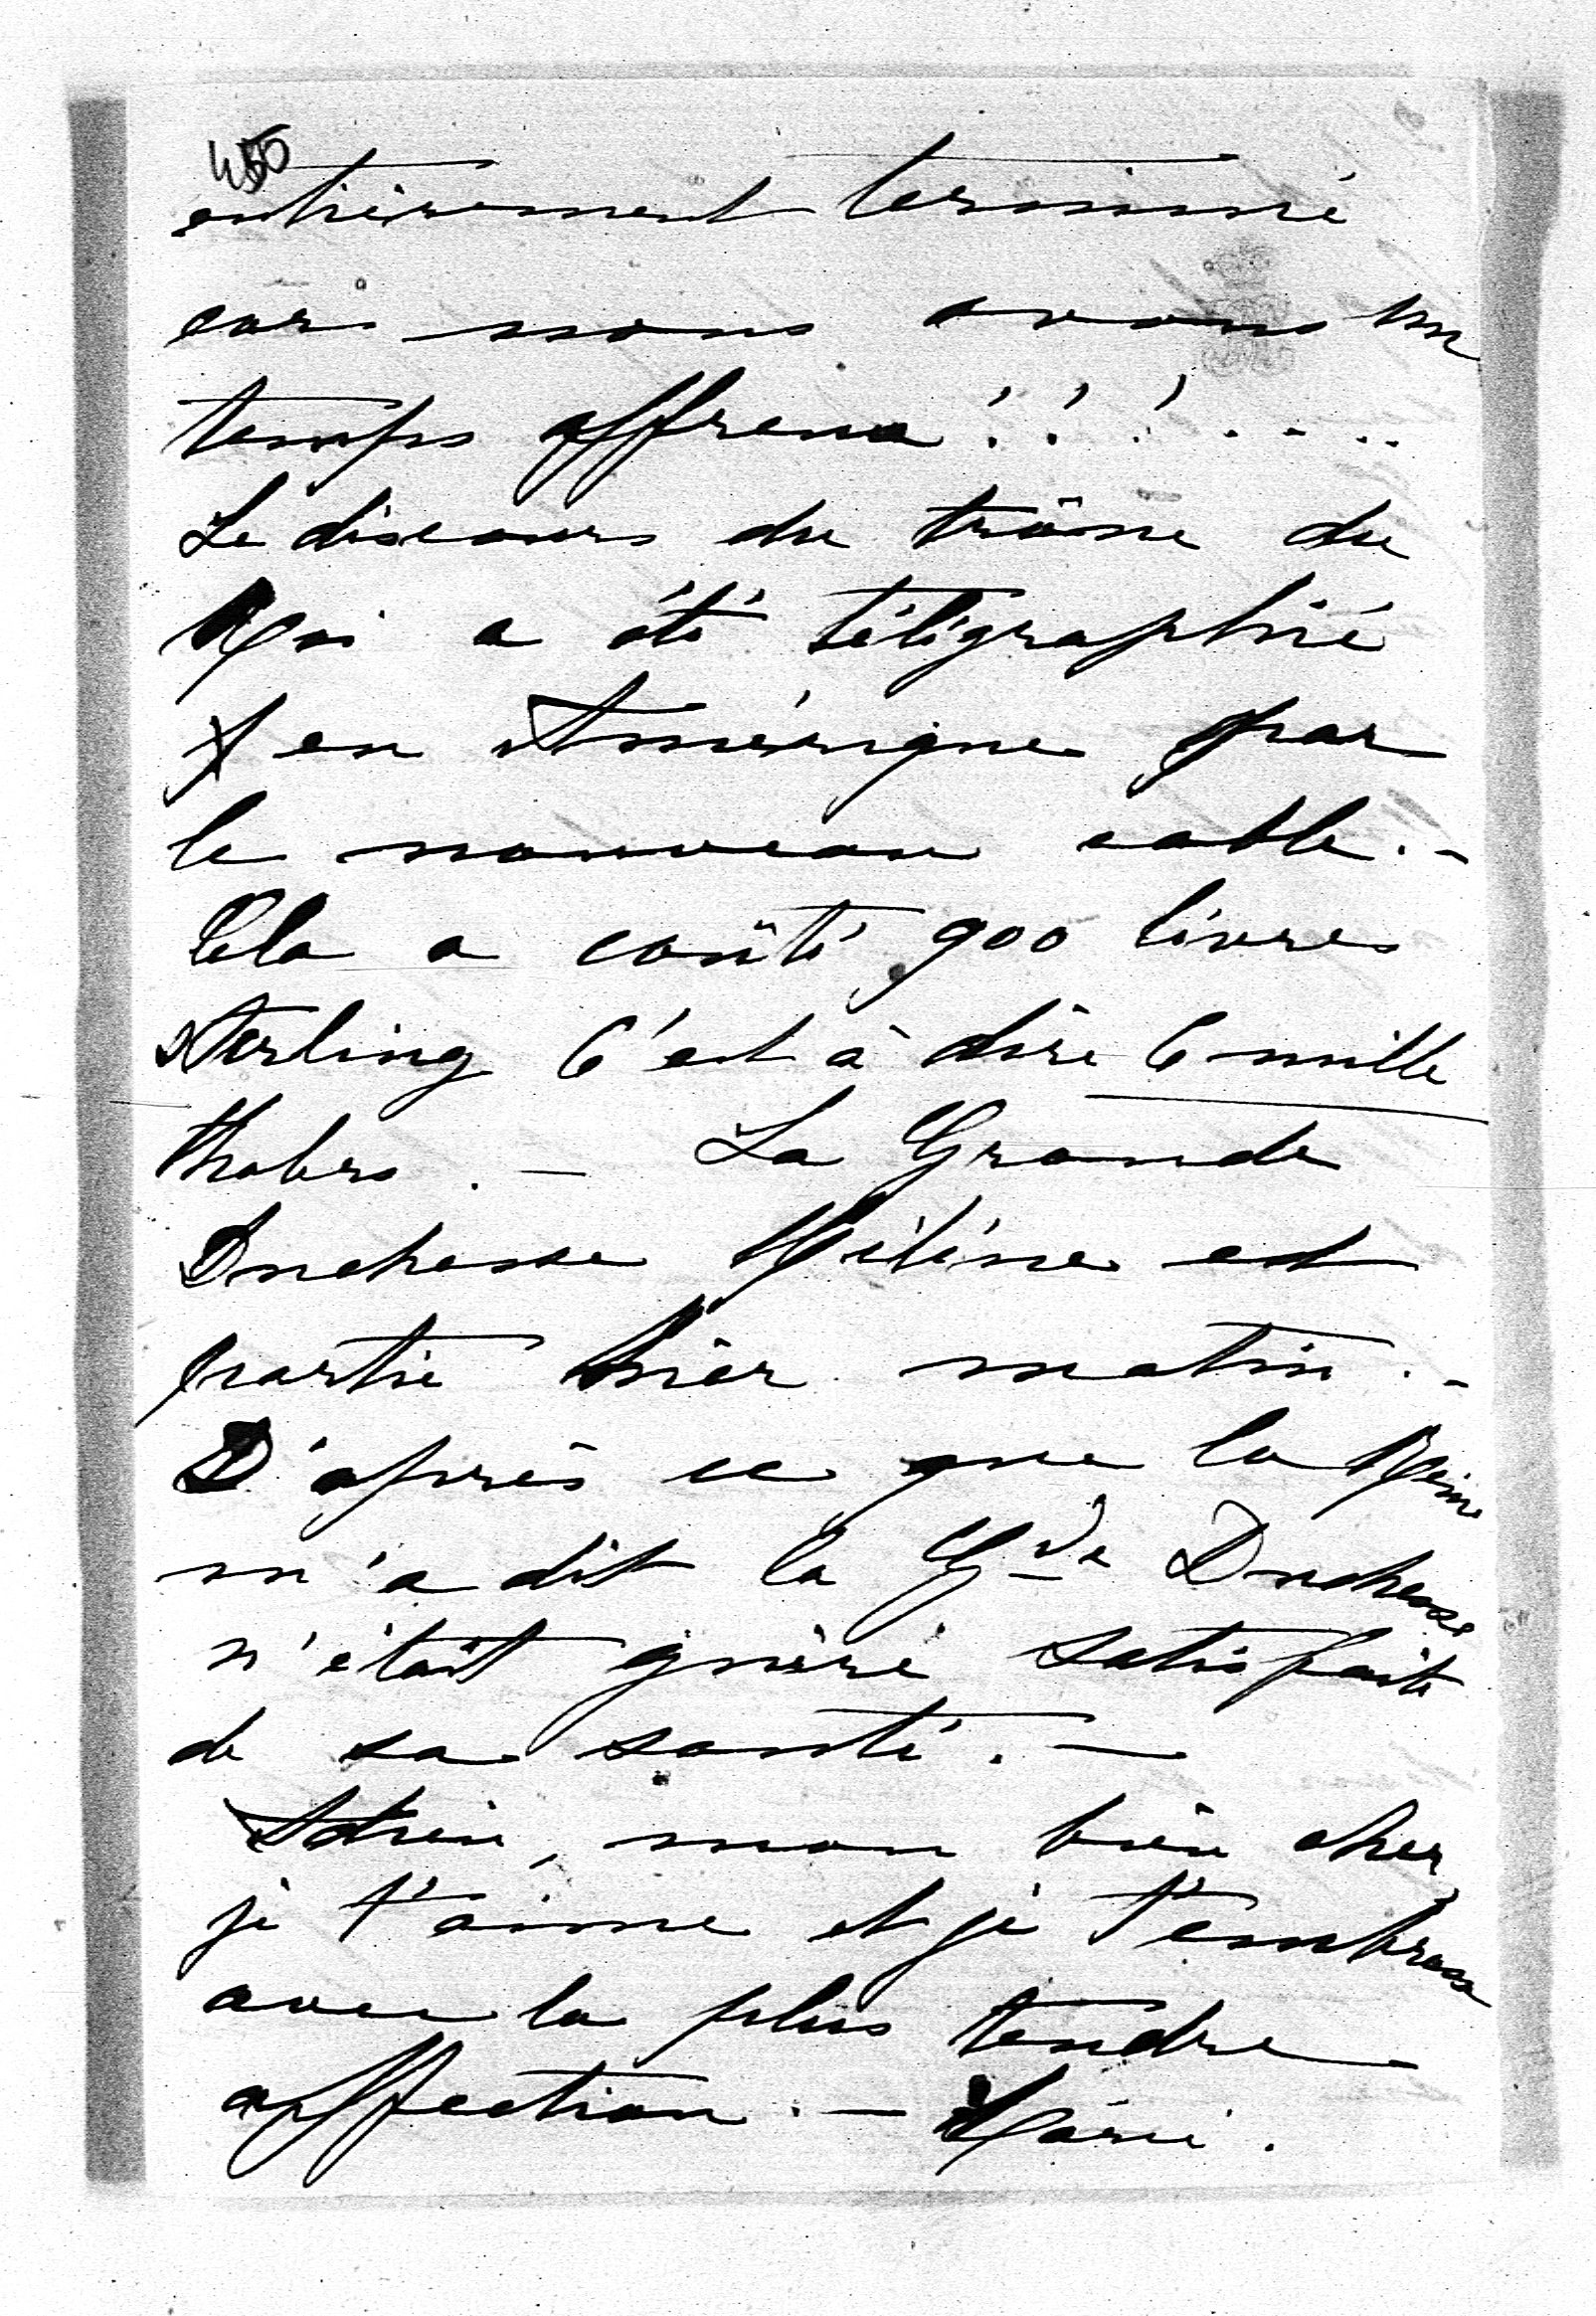 450
entièrement terminé
car nous avons un
temps affreux ! ! ! . . . .
Le discours du trône du
Roi a été télégraphié
en Amérique par
le nouveau cable. -
Cela a coûté 900 livres
sterling C'est à dire 6 mille
thalers. — La Grande
Duchesse Hélène est
partie hier matin. -
D'après ce que la Reine
m'a dit la Gde Duchesse
n'était guère satisfaite
de sa santé. —
Adieu, mon bien cher,
je t'aime et je t'embrasse
avec la plus tendre
affection. — Marie.